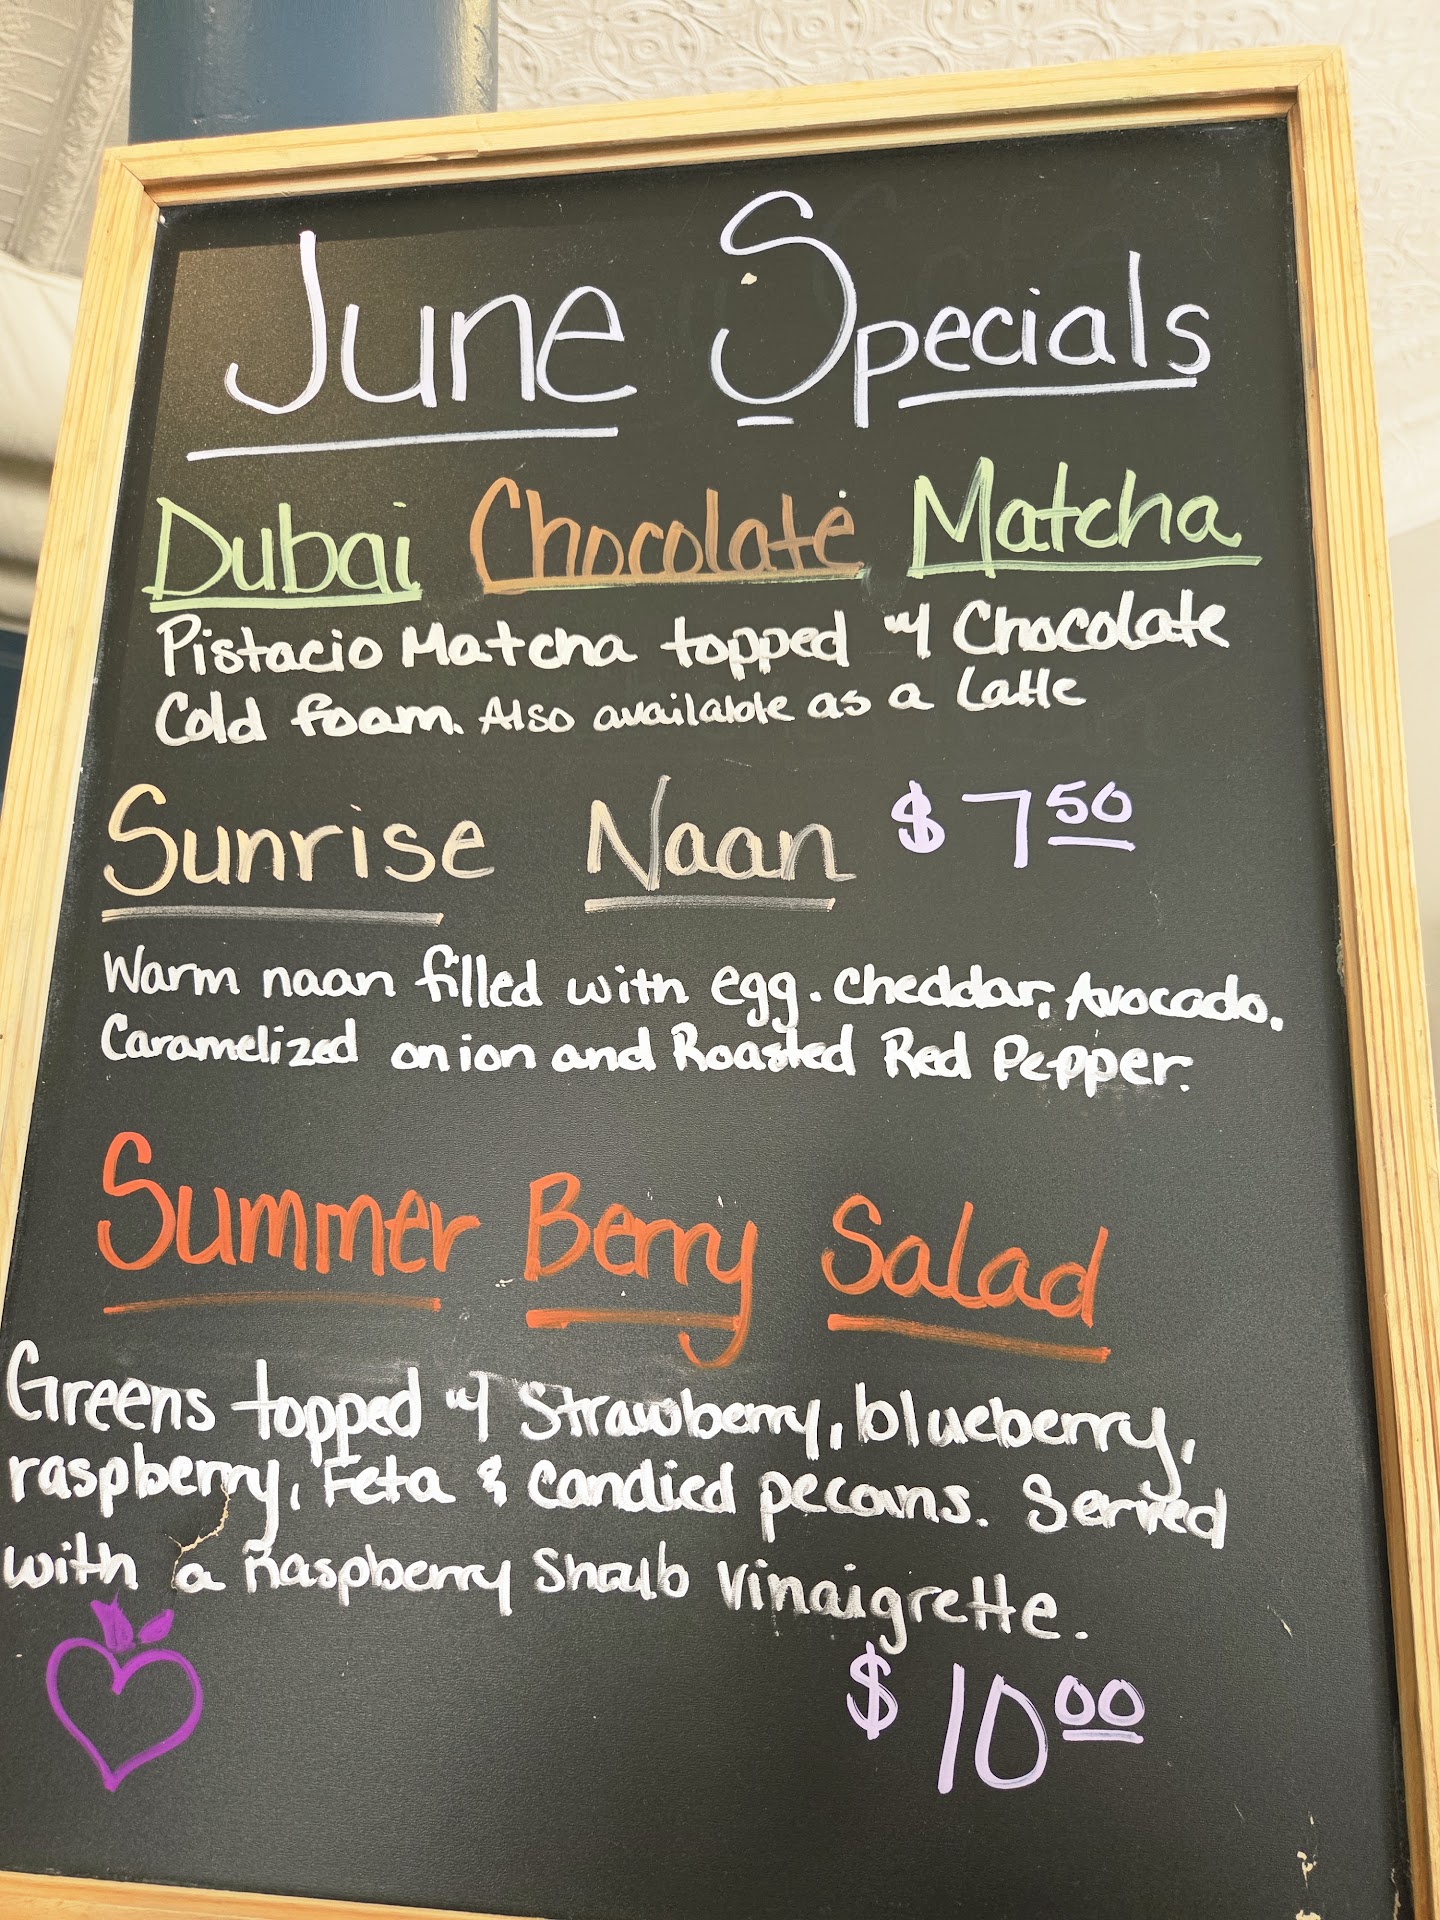 June Specials
Dubai Chocolate Matcha
Pistacio Matcha topped w/ Chocolate
Cold foam. Also available as a Latte
Sunrise Naan $7.50
Warm naan filled with egg. cheddar, Avocado.
Caramelized onion and Roasted Red Pepper.
Summer Berry Salad
Greens topped w/ Strawberry, blueberry,
raspberry, Feta & Candied pecans. Served
with a Raspberry Shalb Vinaigrette.
$10.00